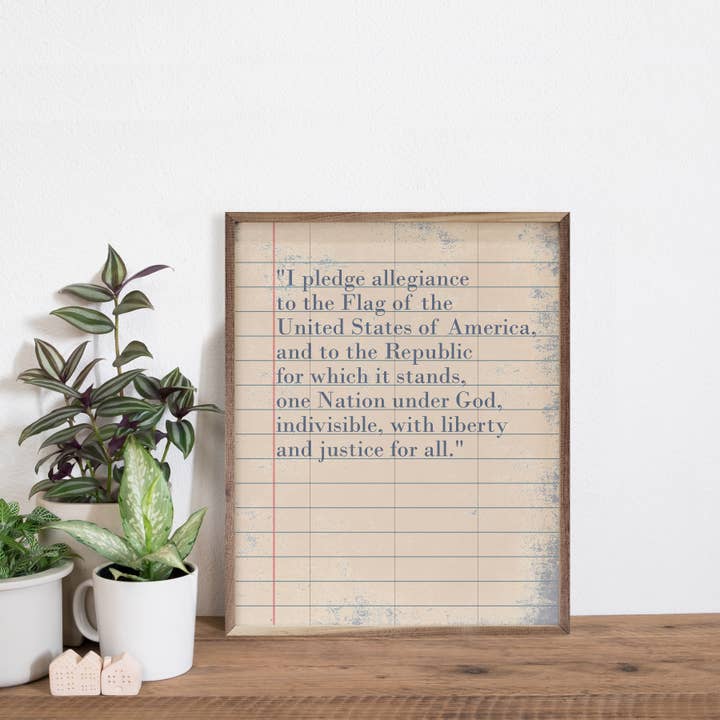 "I pledge allegiance
to the Flag of the
United States of America,
and to the Republic
for which it stands,
one Nation under God,
indivisible, with liberty
and justice for all."